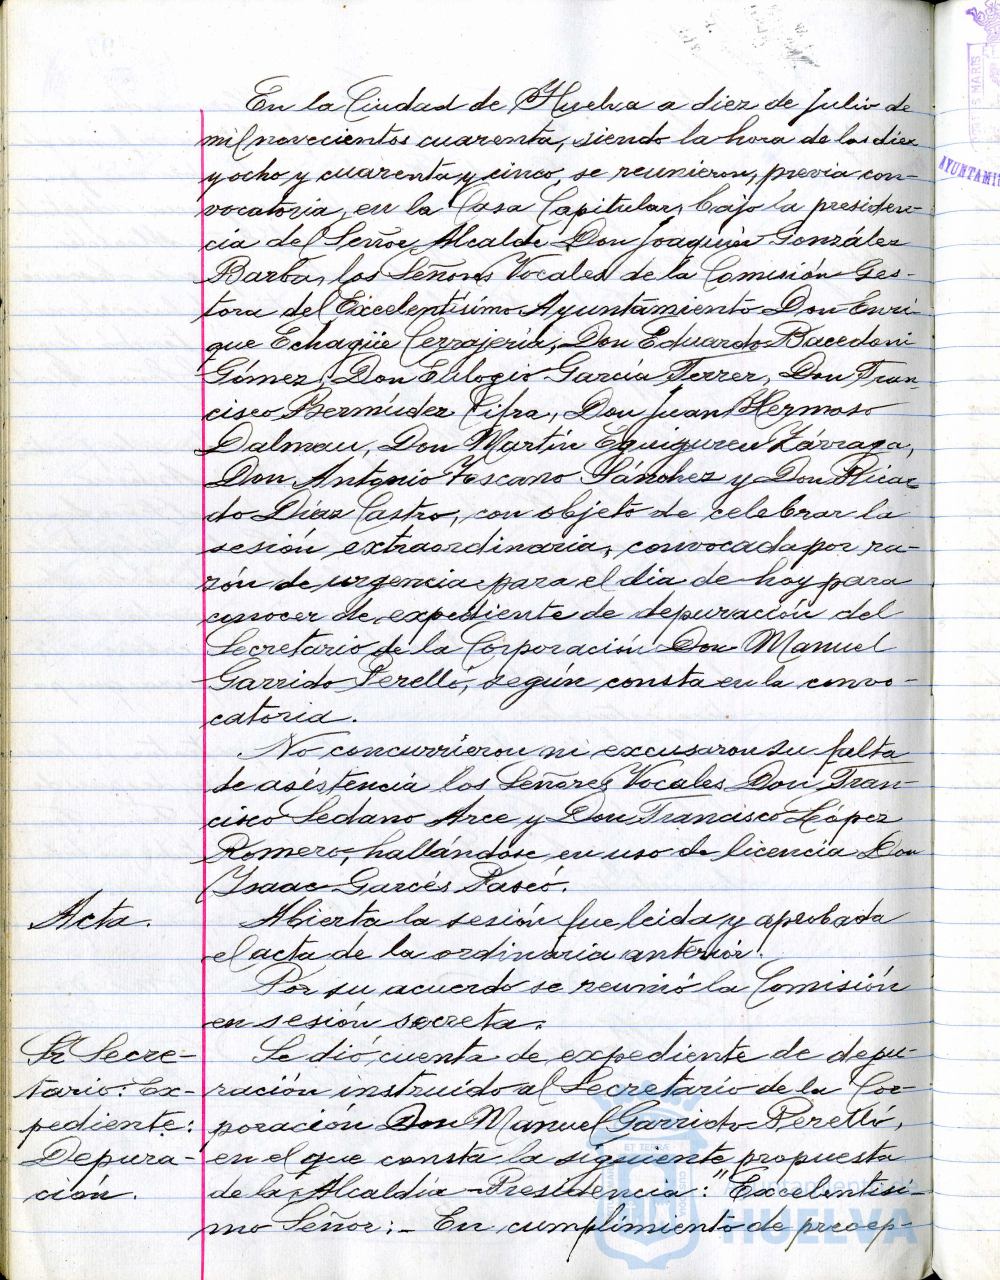 En la Ciudad de Huelva a diez de Julio de
mil novecientos cuarenta, siendo la hora de las diez
y ocho y cuarenta y cinco, se reunieron, previa con-
vocatoria, en la Casa Capitular, bajo la presiden-
cia del Señor Alcalde Don Joaquín González
Barba, los Señores Vocales de la Comisión Ges-
tora del Excelentísimo Ayuntamiento Don Enri-
que Echagüe Cerrajería, Don Eduardo Bacedoni
Gómez, Don Eulogio García Ferrer, Don Fran-
cisco Bermúdez Tifra, Don Juan Hermoso
Dalmau, Don Martín Eguiguren Zárraga,
Don Antonio Toscano Sánchez y Don Ricar-
do Díaz Castro, con objeto de celebrar la
sesión extraordinaria, convocada por ra-
zón de urgencia para el dia de hoy para
conocer de expediente de depuración del
Secretario de la Corporación Don Manuel
Garrido Perelló, según consta en la convo-
catoria.
No concurrieron ni excusaron su falta
de asistencia los Señores Vocales Don Fran-
cisco Sedano Arce y Don Francisco López
Romero, hallándose en uso de licencia Don
Isaac Garcés Pascó.
Acta. Abierta la sesión fue leida y aprobada
el acta de la ordinaria anterior.
Por su acuerdo se reunió la Comisión
en sesión secreta.
Sr. Secre- Se dió cuenta de expediente de depu-
tario: Ex- ración instruido al Secretario de la Cor-
pediente: poración Don Manuel Garrido Perelló,
Depura- en el que consta la siguiente propuesta
ción. de la Alcaldía-Presidencia: "Excelentísi-
mo Señor: - En cumplimiento de precep-
AYUNTAMI
MARIS
Ayuntamiento de
HUELVA